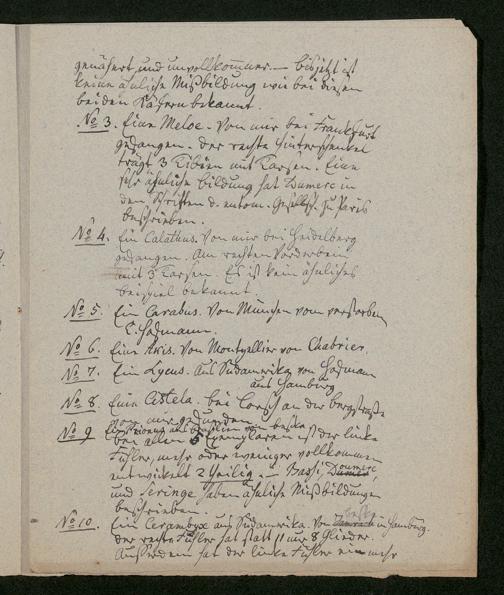 genähert und unvollkommen. — bis jetzt ist
keine ähnliche Mißbildung wie bei diesen
beiden Käfern bekannt.
No 3. Eine Meloe. Von mir bei Frankfurt
gefangen. Der rechte Hinterschenkel
trägt 3 Tibien mit Tarsen. Eine
sehr ähnliche Bildung hat Dumeric in
den Schriften d. entom. Gesellsch. zu Paris
beschrieben.
No 4. Ein Calathus. Von mir bei Heidelberg
gefangen. Am rechten Vorderbein
mit 3 Tarsen. Es ist kein ähnliches
Beispiel bekannt.
No 5. Ein Carabus. Von München vom verstorben
No 6. Eine Akis. Von Montpellier von Chabrier.
No 7. Ein Lycus. Aus Südamerika von
aus Hamburg
No 8 Eine Cistela. bei Lorsch an der Bergstraße
von mir gefunden.
No 9 aus Brasilien von Beske
bei allen 5 Exemplaren ist der linke
Fühler, mehr oder weniger vollkommen
entwickelt 2 theilig. — Bassi,
und Seringe haben ähnliche Mißbildungen
beschrieben.
No 10. Ein Cerambyx aus Südamerika. Von Beske in Hamburg.
der rechte Fühler hat statt 11 nur 8 Glieder.
Außerdem hat der linke Fühler ein mehr